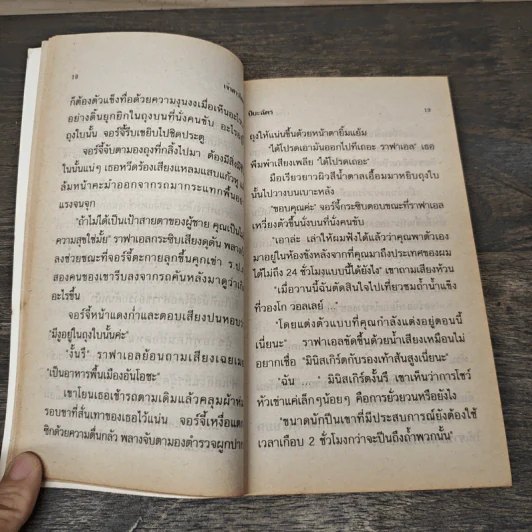 18
เจ้าสาว
ก็ต้องตัวแข็งทื่อด้วยความงุนงงเมื่อเห็นอะไร
อย่างดิ้นยุกยิกในถุงบนที่นั่งคนขับ อะไร
ถุงใบนั้น จอร์จี้รีบเขยิบไปชิดประตู
จอร์จี้จับตามองถุงที่กลิ้งไปมา ต้องมีสิ่งมี
ในนั้นแน่ๆ เธอหวีดร้องเสียงแหลมแสบแก้วหู
ล้มหน้าคะมำออกจากรถมากระแทกพื้น
แรงจนจุก
"ถ้าไม่ได้เป็นเป้าสายตาของผู้ชาย คุณเป็นไม่
ความสุขใช่มั้ย" ราฟาเอลกระซิบเสียงดุดัน พลาง
ลงช่วยขณะที่จอร์จี้ตะกายลุกขึ้นคุกเข่า ร ป
สองคนของเขารีบลงจากรถคันหลังมาดูว่าเกิด
อะไรขึ้น
จอร์จี้หน้าแดงก่ำและตอบเสียงปนหอบ
"มีงูอยู่ในถุงใบนั้นค่ะ"
"งั้นรึ" ราฟาเอลย้อนถามเสียงเฉยเมย
"เป็นอาหารพื้นเมืองอันโอชะ"
เขาโยนเธอเข้ารถตามเดิมแล้วคลุมผ้าห่ม
รอบขาที่สั่นเทาของเธอไว้แน่น จอร์จี้เหงื่อแตก
ซิกด้วยความตื่นกลัว พลางจับตามองตำรวจผูกปาก
ปิยะฉัตร
19
ถุงให้แน่นขึ้นด้วยหน้าตายิ้มแย้ม
"ได้โปรดเอามันออกไปที่เถอะ ราฟาเอล" เธอ
พึมพำเสียงเพลีย "ได้โปรดเถอะ"
มือเรียวยาวผิวสีน้ำตาลเอื้อมมาหยิบถุงใบ
นั้นไปวางบนเบาะหลัง
"ขอบคุณค่ะ" จอร์จี้กระซิบตอบขณะที่ราฟาเอล
เหวี่ยงตัวขึ้นนั่งบนที่นั่งคนขับ
"เอาล่ะ เล่าให้ผมฟังได้แล้วว่าคุณพาตัวเอง
มาอยู่ในห้องขังหลังจากที่คุณมาถึงประเทศของผม
ได้ไม่ถึง 24 ชั่วโมงแบบนี้ได้ยังไง" เขาถามเสียงห้วน
"เมื่อวานนี้ฉันตัดสินใจไปเที่ยวชมถ้ำน้ำแข็ง
ที่วองโก วอลเลย์ ..."
"โดยแต่งตัวแบบที่คุณกำลังแต่งอยู่ตอนนี้
เนี่ยนะ" ราฟาเอลขัดขึ้นด้วยน้ำเสียงเหมือนไม่
อยากเชื่อ "มินิสเกิร์ตกับรองเท้าส้นสูงเนี่ยนะ"
"ฉัน ..." มินิสเกิร์ตงั้นรึ เขาเห็นว่าการโชว์
หัวเข่าแค่เล็กๆ น้อยๆ คือการยั่วยวนหรือยังไง
"ขนาดนักปีนเขาที่มีประสบการณ์ยังต้องใช้
เวลาเกือบ 2 ชั่วโมงกว่าจะปีนถึงถ้ำพวกนั้น"